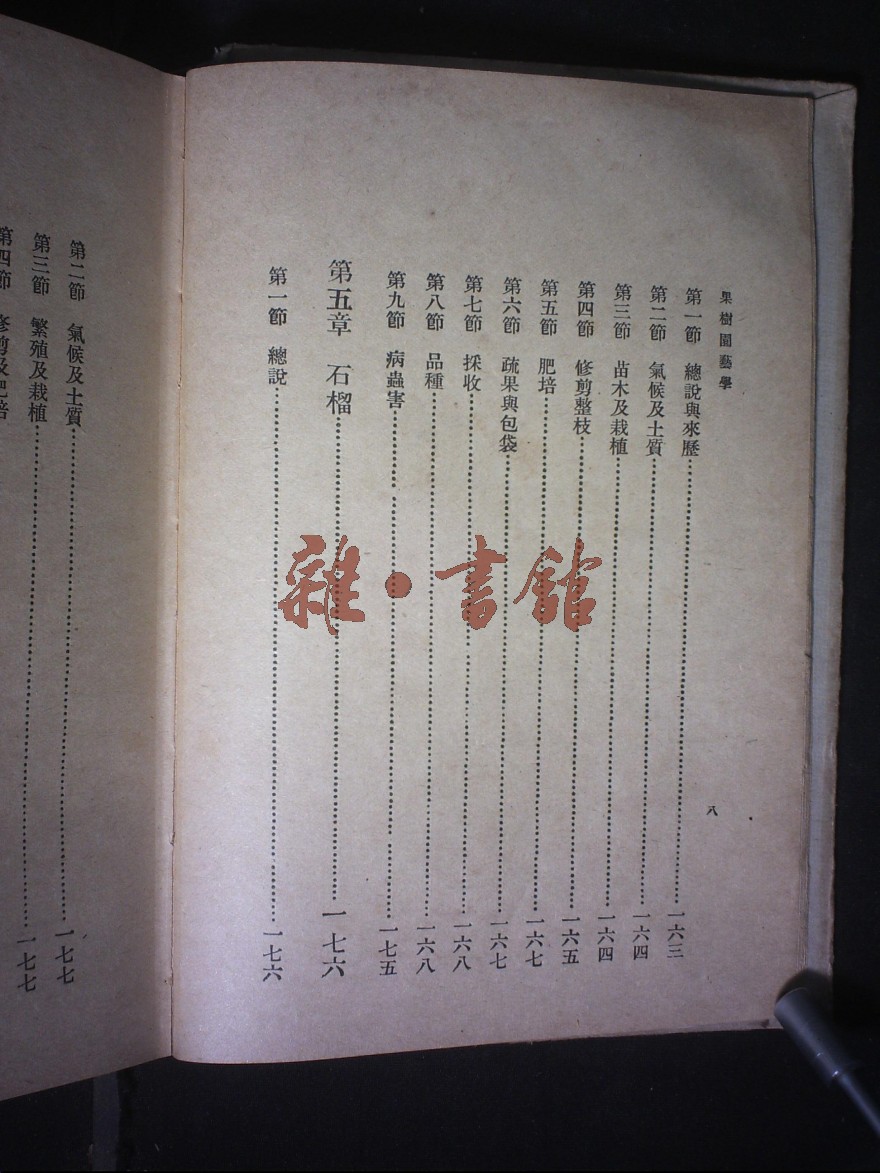 果樹園藝學
八
第一節 總說與來歷……一六三
第二節 氣候及土質……一六四
第三節 苗木及栽植……一六四
第四節 修剪整枝……一六五
第五節 肥培……一六七
第六節 疏果與包袋……一六七
第七節 採收……一六八
第八節 品種……一六八
第九節 病蟲害……一七五
第五章 石榴……一七六
第一節 總說……一七六
第二節 氣候及土質……一七七
第三節 繁殖及栽植……一七七
第四節 修剪及肥培
雜•書館